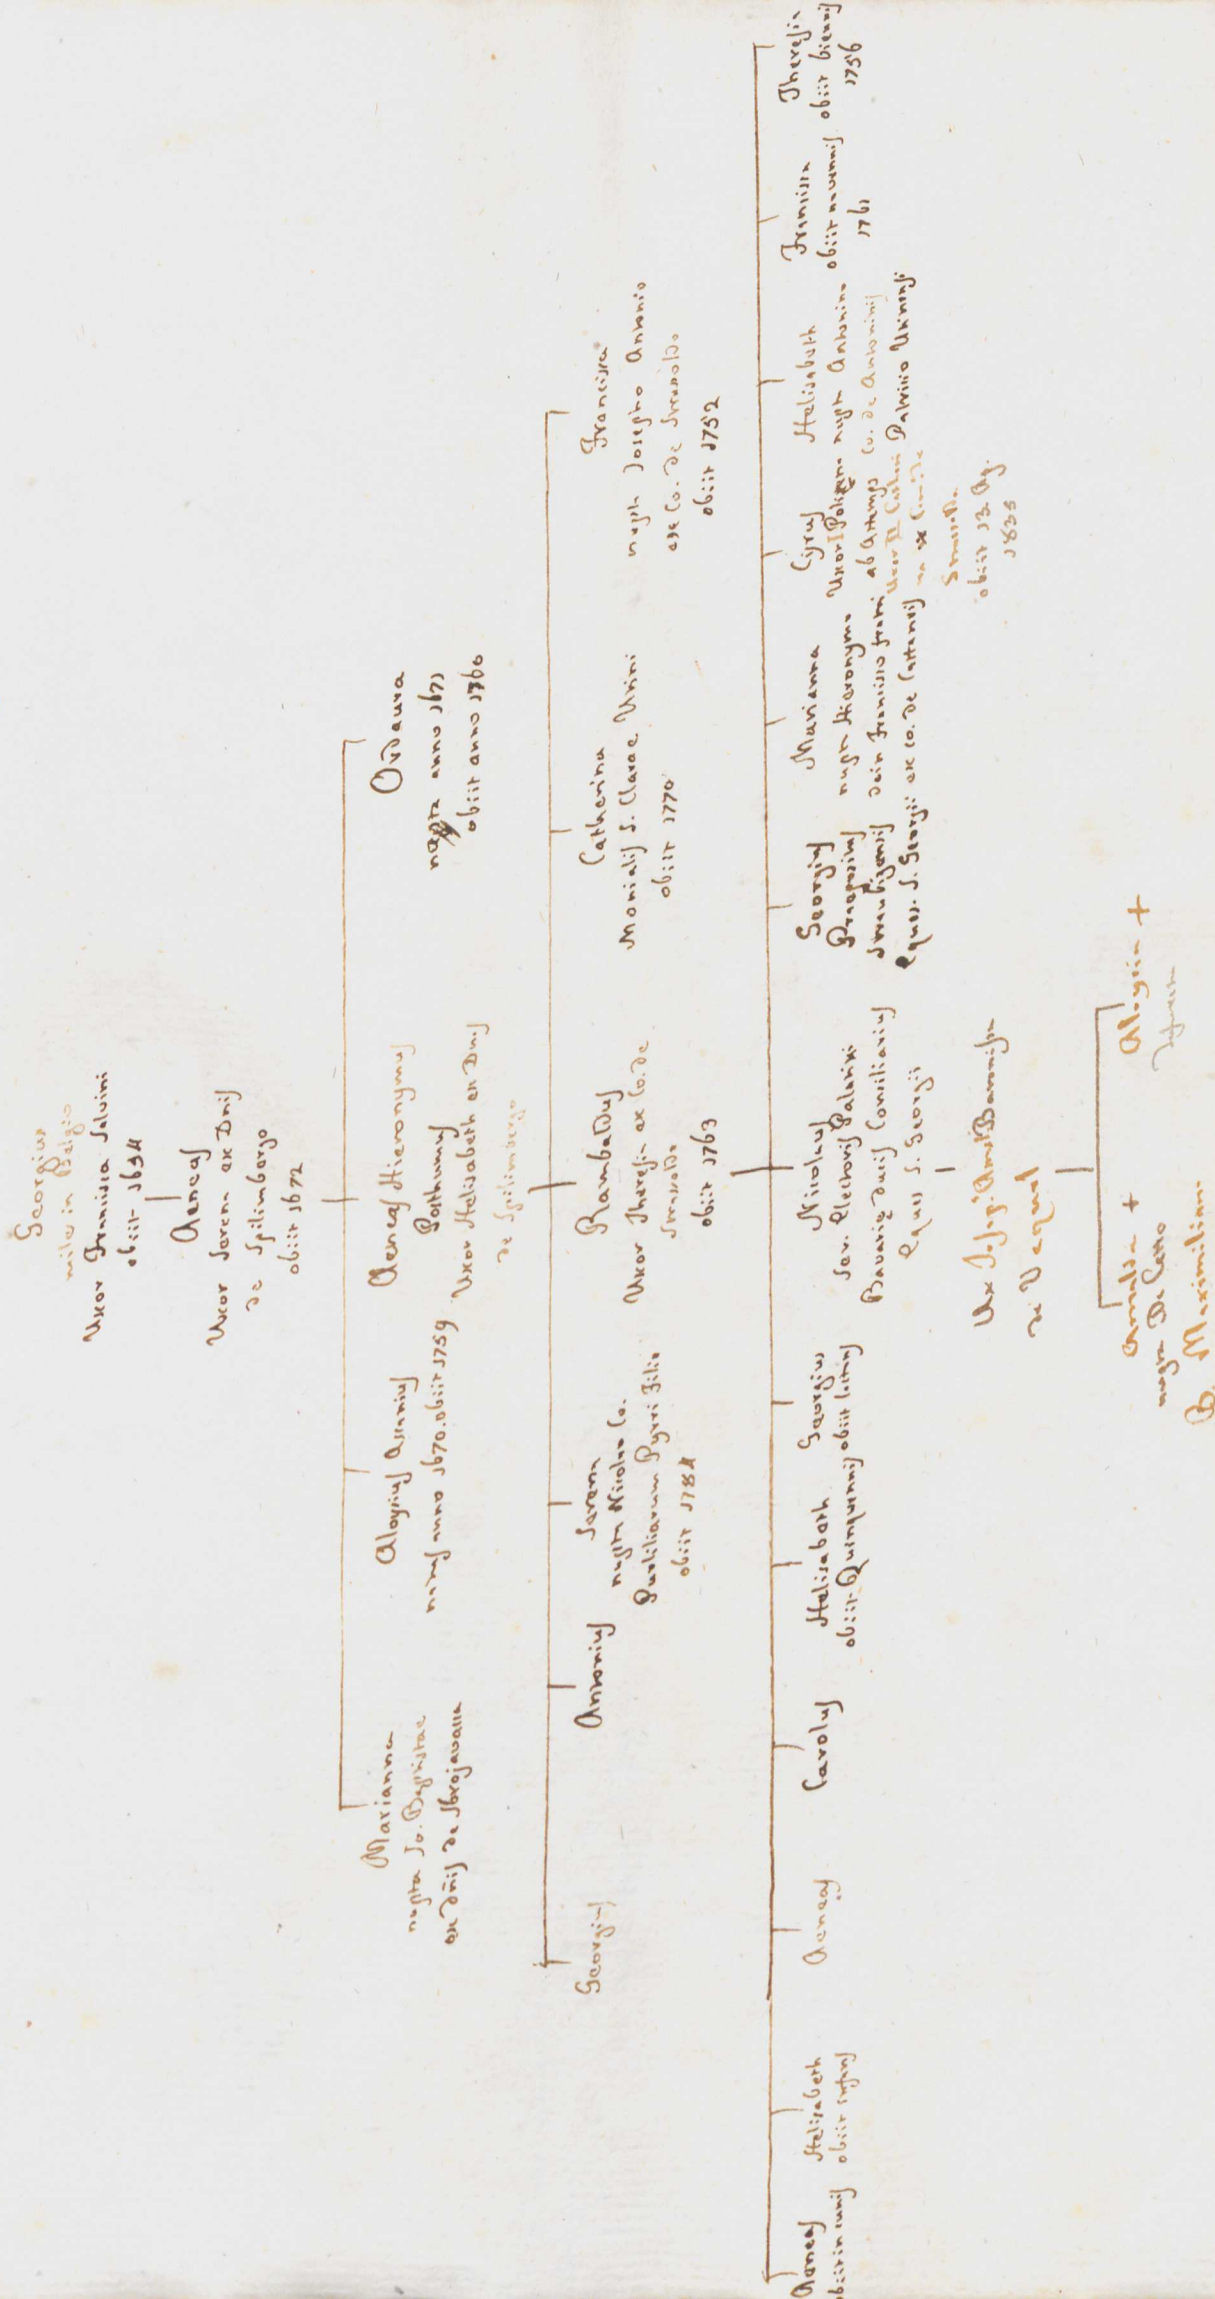 Georgius
miles in Belgio
Uxor Francisca Salvini
obiit 1654
Aeneas
Uxor Serena ex Dnis
de Spilimbergo
obiit 1672
Marianna
nupta Jo. Baptistae
ex Dnis de Sbrojavacca
Aloysius Ascanius
natus anno 1670. obiit 1759
Aeneas Hieronymus
Posthumus
Uxor Helisabeth ex Dnis
de Spilimbergo
Ordaura
nupta anno 1671
obiit anno 1760
Georgius
Antonius
Serena
nupta Nicolao Co.
Purliliarum Pyrri Filio
obiit 1784
Rambaldus
Uxor Theresia ex Co. de
Strasoldo
obiit 1763
Catherina
Monialis S. Clarae Utini
obiit 1770
Francisca
nupta Josepho Antonio
ex Co. de Strasoldo
obiit 1752
Aeneas
obiit in cunis
Helisabeth
obiit infans
Aeneas
Carolus
Helisabeth
obiit Quinquennis
Georgius
obiit
Nicolaus
Ser. Electoris Palatini
Bavariae Ducis Consiliarius
Eques S. Georgii
Georgius
Praepositus
Straubigensis
Eques S. Georgii
Marianna
nupta Hieronymo
dein Francisco fratri
ex Co. de Cattaneis
Cyrus
Uxor I
ab Attemps
Uxor II
obiit 12 Ag.
1835
Helisabeth
nupta Antonino
Co. de Antoninis
Patritio Utinensi
Francisca
obiit novennis
1761
Theresia
obiit biennis
1756
Ux Baronissa
de
Amalia +
nupta De
B. Maximilian.
Aloysia +